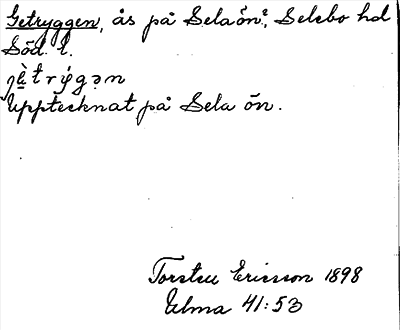 Getryggen, ås på Selaön?, Selebo hd
Söd. l.
Upptecknat på Sela ön.
Torsten Ericsson 1898
Ulma 41:53